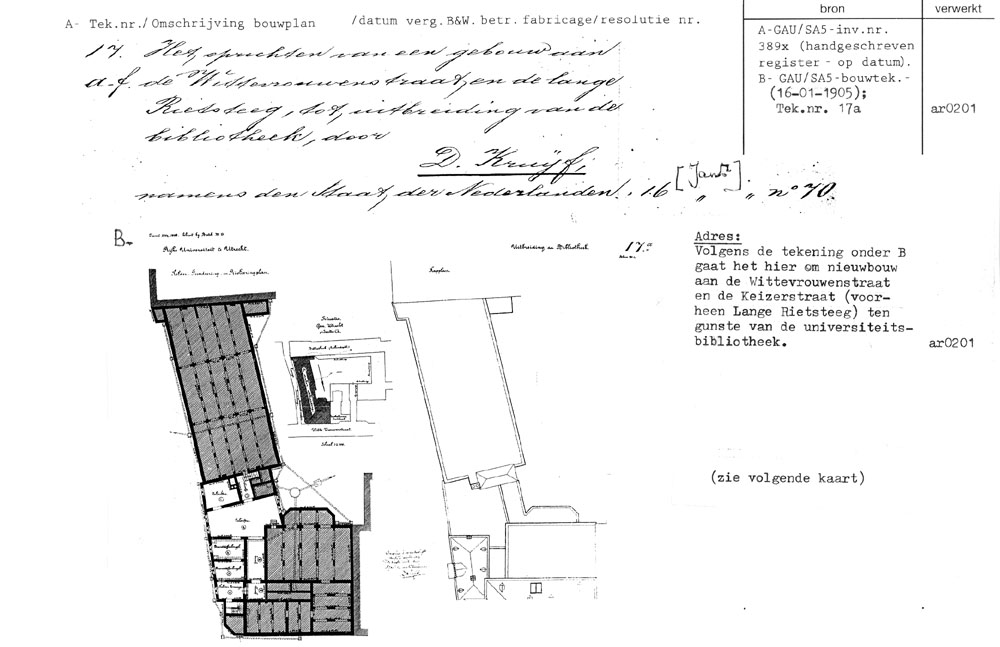 A- Tek.nr./Omschrijving bouwplan /datum verg.B&W.betr.fabricage/resolutie nr.
bron
verwerkt
17. Het oprichten van een gebouw aan
a.f. de Wittevrouwenstraat, en de lange
Rietsteeg, tot uitbreiding van de
bibliotheek, door
D. Kruijf,
namens den Staat der Nederlanden. 16 [Jan] " " no 70.
A-GAU/SA5-inv.nr.
389x (handgeschreven
register - op datum).
B- GAU/SA5-bouwtek.-
(16-01-1905);
Tek.nr. 17a
ar0201
B-
Rijks Universiteit te Utrecht.
Uitbreiding der Bibliotheek
17.a
Kapplan
Situatie
Gem. Utrecht
Adres:
Volgens de tekening onder B
gaat het hier om nieuwbouw
aan de Wittevrouwenstraat
en de Keizerstraat (voor-
heen Lange Rietsteeg) ten
gunste van de universiteits-
bibliotheek.
ar0201
(zie volgende kaart)